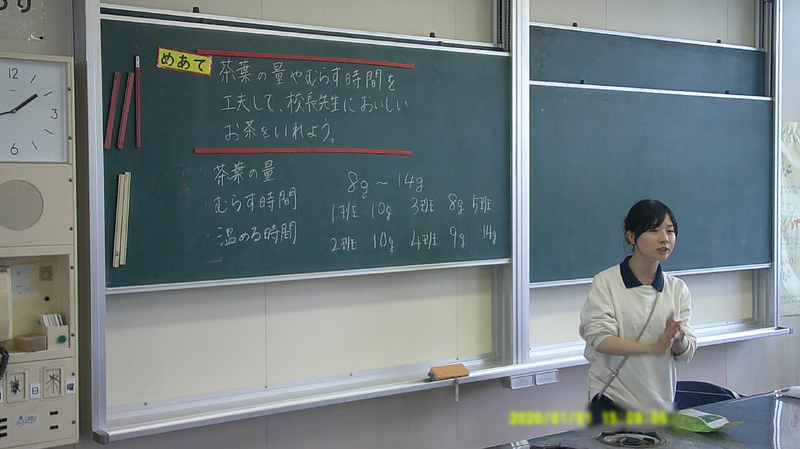 めあて
茶葉の量やむらす時間を
工夫して、校長先生においしい
お茶をいれよう。
茶葉の量
・むらす時間
・温める時間
8g～14g
1班 10g 3班 8g 5班
2班 10g 4班 9g 14g
12
3
日